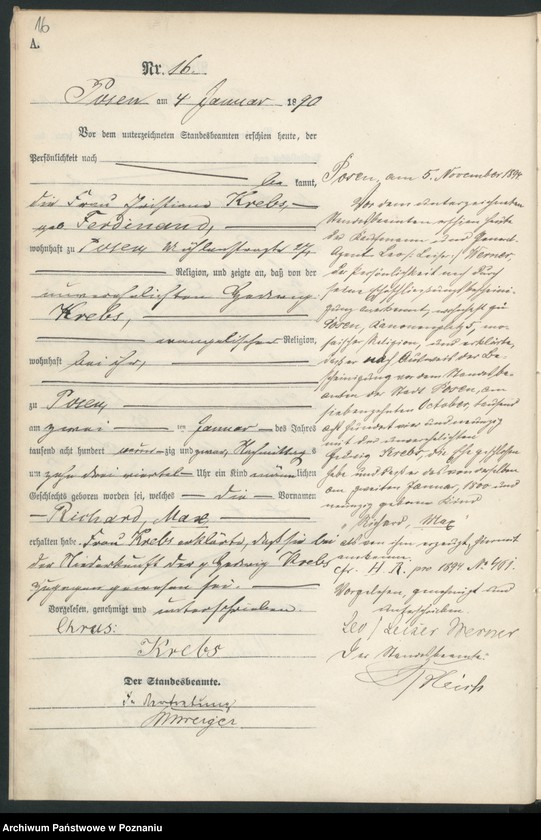 16
A.
Nr. 16.
Posen am 4 Januar 1890
Vor dem unterzeichneten Standesbeamten erschien heute, der
Persönlichkeit nach
be kannt,
die Frau Krebs
geb Ferdinand,
wohnhaft zu Posen
Religion, und zeigte an, daß von der
unverehelichten Hedwig
Krebs,
evangelischer Religion,
wohnhaft bei ihr,
zu Posen
am zwei ten Januar des Jahres
tausend acht hundert neun zig und zwar Nachmittag s
um zehn drei viertel Uhr ein Kind männ lichen
Geschlechts geboren worden sei, welches die Vornamen
Richard, Max,
erhalten habe. Frau Krebs erklärte, daß sie bei
der Niederkunft der p Hedwig Krebs
zugegen gewesen sei.
Vorgelesen, genehmigt und unterschrieben
Krebs
Der Standesbeamte.
In Vertretung
Posen, am 5. November 1894
Vor dem unterzeichneten
Standesbeamten erschien heute
der Kaufmann und
Agent Leo / Leiser / Werner,
der Persönlichkeit nach durch
seine
anerkannt, wohnhaft zu
Posen, Kanonenplatz 5, mo-
saischer Religion, und erklärte,
daß er nach Ausweis der Be-
scheinigung vor dem Standesbe-
amten der Stadt Posen, am
siebenzehnten October, tausend
acht hundert vier und neunzig
mit der unverehelichten
Hedwig Krebs, die Ehe geschlossen
habe und daß er das von derselben
am zweiten Januar, 1800 und
neunzig geborene Kind
"Richard, Max"
als von ihm erzeugt, hiermit
anerkenne.
cfr. H. R. pro 1894 No 401.
Vorgelesen, genehmigt und
unterschrieben.
Leo / Leiser Werner
Der Standesbeamte:
Archiwum Państwowe w Poznaniu